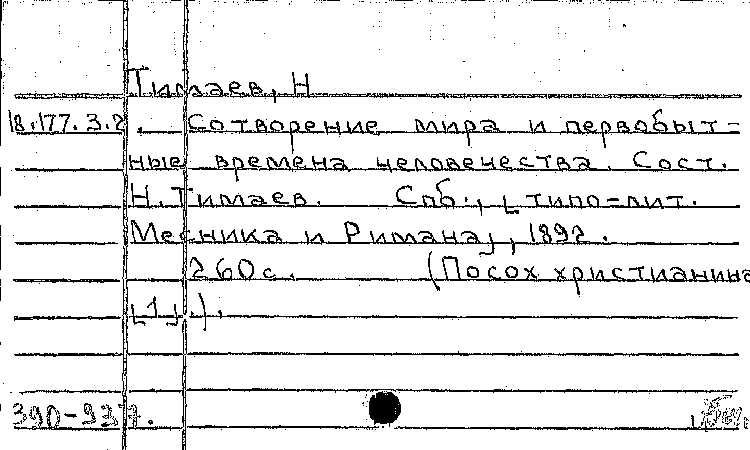 Тимаев, Н
18.177.3.2. Сотворение мира и первобыт=
ные времена человечества. Сост.
Н. Тимаев. Спб., [типо=лит.
Месника и Римана], 1892.
260с. (Посох христианина
[1].).
390-937.